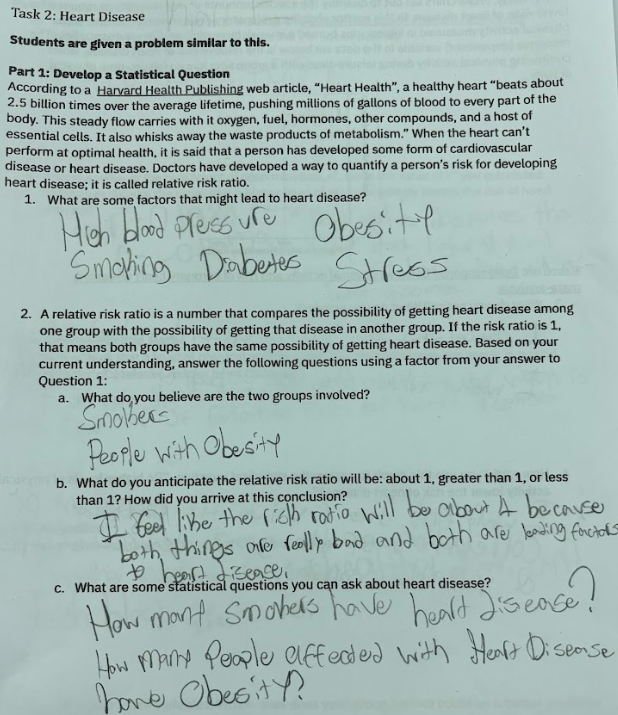 Task 2: Heart Disease
Students are given a problem similar to this.
Part 1: Develop a Statistical Question
According to a Harvard Health Publishing web article, “Heart Health”, a healthy heart “beats about
2.5 billion times over the average lifetime, pushing millions of gallons of blood to every part of the
body. This steady flow carries with it oxygen, fuel, hormones, other compounds, and a host of
essential cells. It also whisks away the waste products of metabolism.” When the heart can’t
perform at optimal health, it is said that a person has developed some form of cardiovascular
disease or heart disease. Doctors have developed a way to quantify a person’s risk for developing
heart disease; it is called relative risk ratio.
1. What are some factors that might lead to heart disease?
High blood pressure Obesity
Smoking Diabetes Stress
2. A relative risk ratio is a number that compares the possibility of getting heart disease among
one group with the possibility of getting that disease in another group. If the risk ratio is 1,
that means both groups have the same possibility of getting heart disease. Based on your
current understanding, answer the following questions using a factor from your answer to
Question 1:
a. What do you believe are the two groups involved?
Smokers
People with Obesity
b. What do you anticipate the relative risk ratio will be: about 1, greater than 1, or less
than 1? How did you arrive at this conclusion?
I feel like the risk ratio will be about 1 because
both things are really bad and both are leading factors
to heart disease.
c. What are some statistical questions you can ask about heart disease?
How many smokers have heart disease?
How many People affected with Heart Disease
have Obesity?